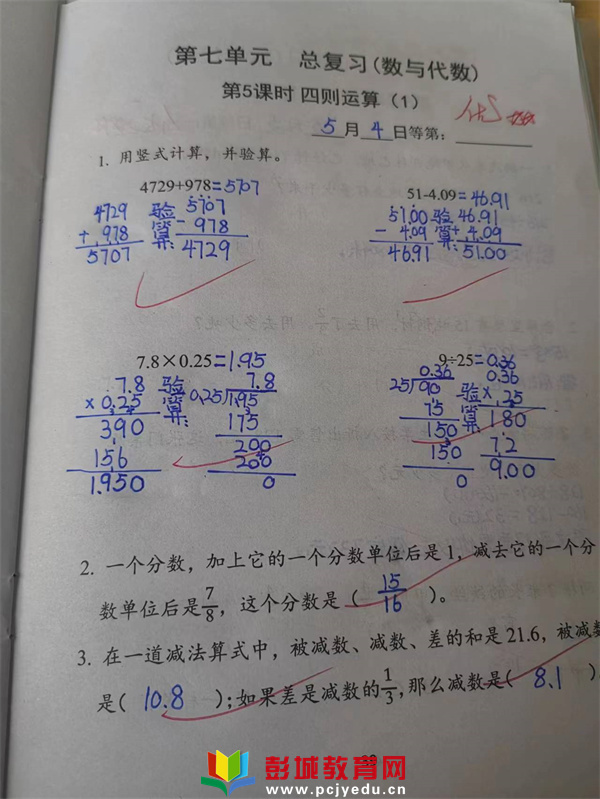 第七单元 总复习(数与代数)
第5课时 四则运算（1）
优
5月4日等第：
1. 用竖式计算，并验算。
4729+978=5707 51-4.09=46.91
4729 验 5707 51.00 验 46.91
+ 978 算 - 978 - 4.09 算 + 4.09
5707 : 4729 46.91 : 51.00
7.8×0.25=1.95 9÷25=0.36
7.8 验 7.8 0.36 0.36
×0.25 算 0.25 1.95 25 90 验 × 25
390 : 175 75 算 180
156 200 150 : 72
1.950 200 150 9.00
0 0
2. 一个分数，加上它的一个分数单位后是1，减去它的一个分
数单位后是7/8，这个分数是（ 15/16 ）。
3. 在一道减法算式中，被减数、减数、差的和是21.6，被减数
是( 10.8 );如果差是减数的1/3,那么减数是( 8.1 )
39
彭城教育网
www.pcjyedu.cn